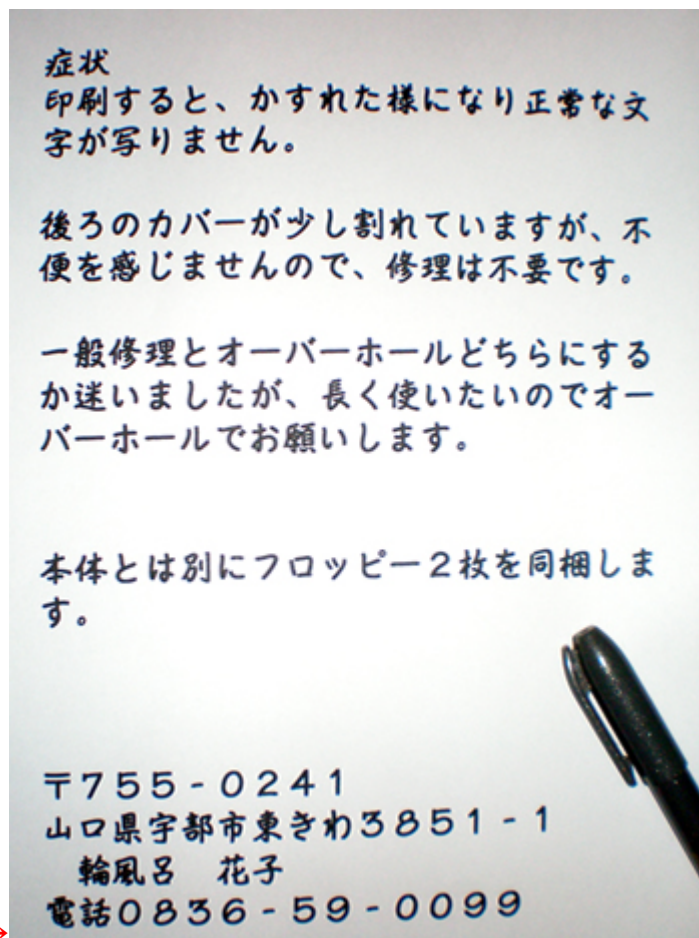 症状
印刷すると、かすれた様になり正常な文
字が写りません。
後ろのカバーが少し割れていますが、不
便を感じませんので、修理は不要です。
一般修理とオーバーホールどちらにする
か迷いましたが、長く使いたいのでオー
バーホールでお願いします。
本体とは別にフロッピー２枚を同梱しま
す。
〒７５５－０２４１
山口県宇部市東きわ３８５１－１
輪風呂　花子
電話０８３６－５９－００９９